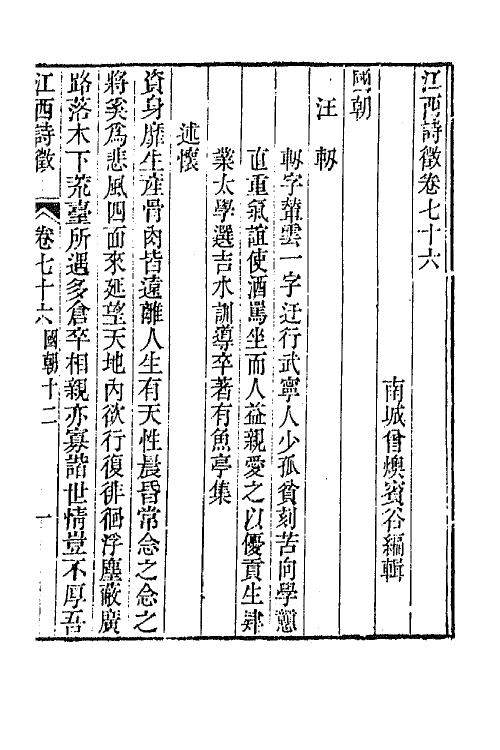 江西詩徵卷七十六
南城曾燠賓谷編輯
國朝
汪軔
軔字輦雲一字迂行武寧人少孤貧刻苦向學戇
直重氣誼使酒罵坐而人益親愛之以優貢生肄
業太學選吉水訓導卒著有魚亭集
述懷
資身靡生產骨肉皆遠離人生有天性晨昏常念之念之
將奚為悲風四面來延望天地內欲行復徘徊浮塵蔽廣
路落木下荒臺所遇多倉卒相親亦寡諧世情豈不厚吾
江西詩徵
卷七十六
國朝十二
一